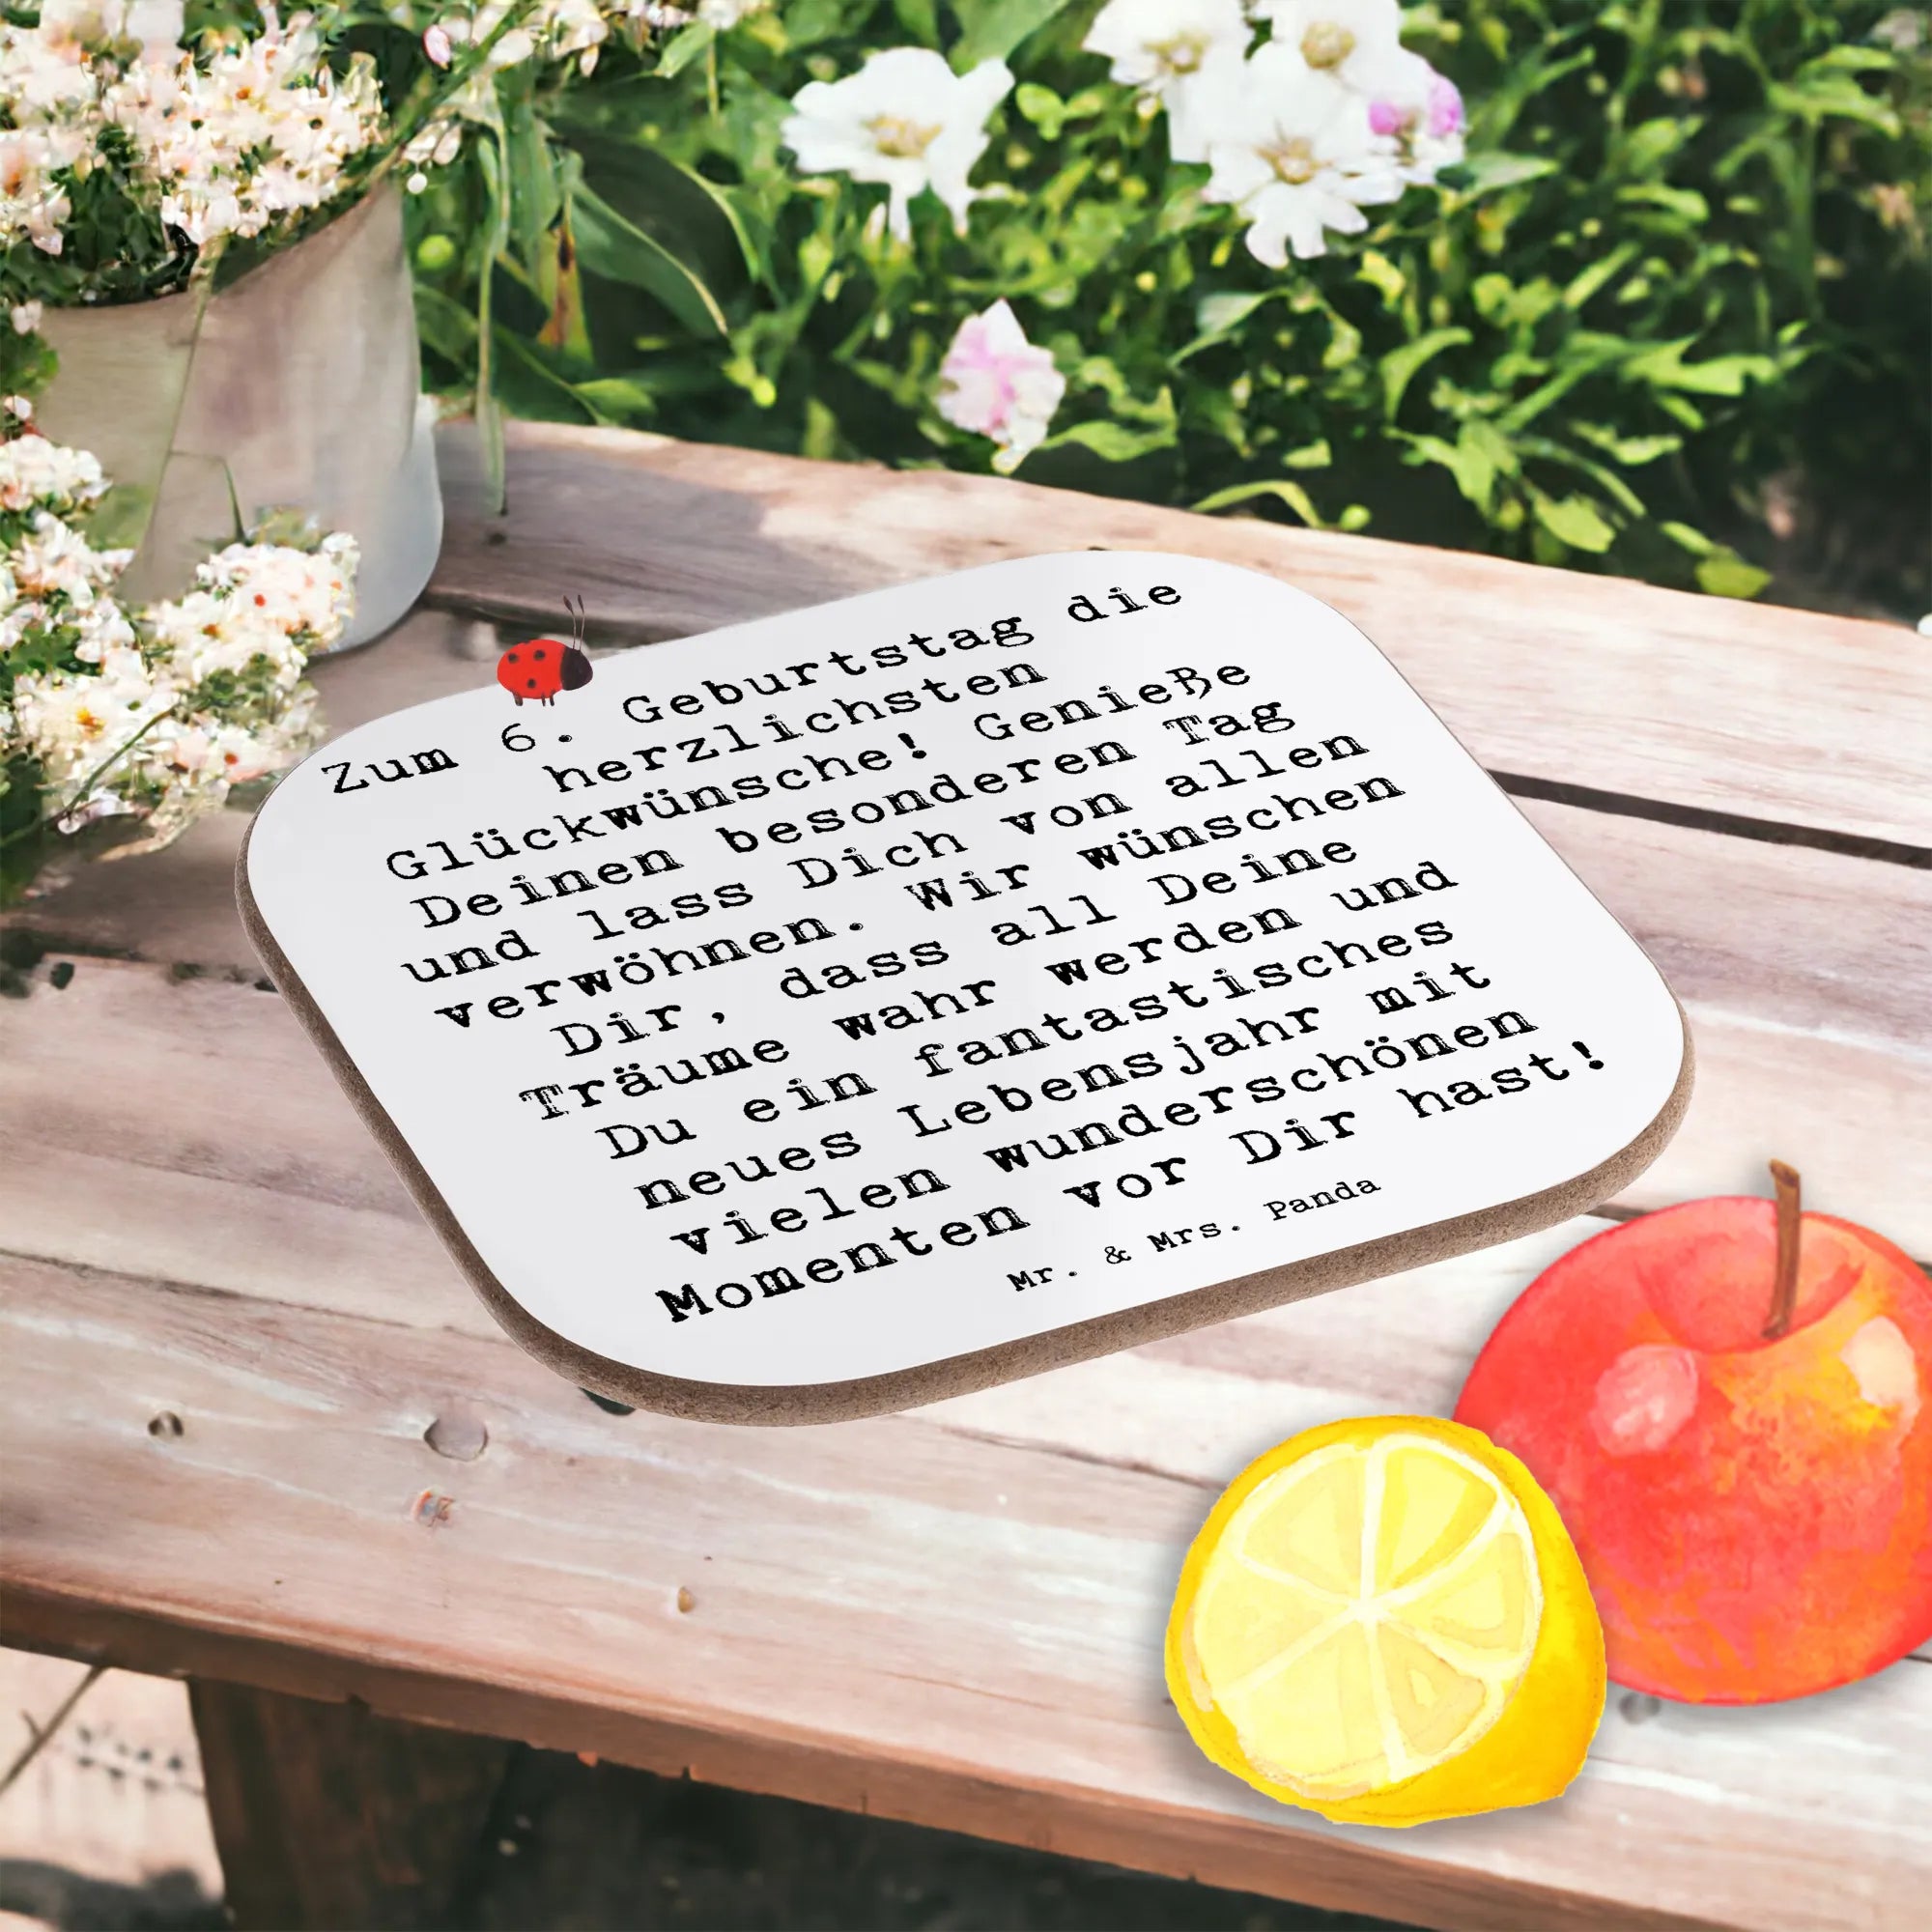 Zum 6. Geburtstag die
herzlichsten
Glückwünsche! Genieße
Deinen besonderen Tag
und lass Dich von allen
verwöhnen. Wir wünschen
Dir, dass all Deine
Träume wahr werden und
Du ein fantastisches
neues Lebensjahr mit
vielen wunderschönen
Momenten vor Dir hast!
Mr. & Mrs. Panda